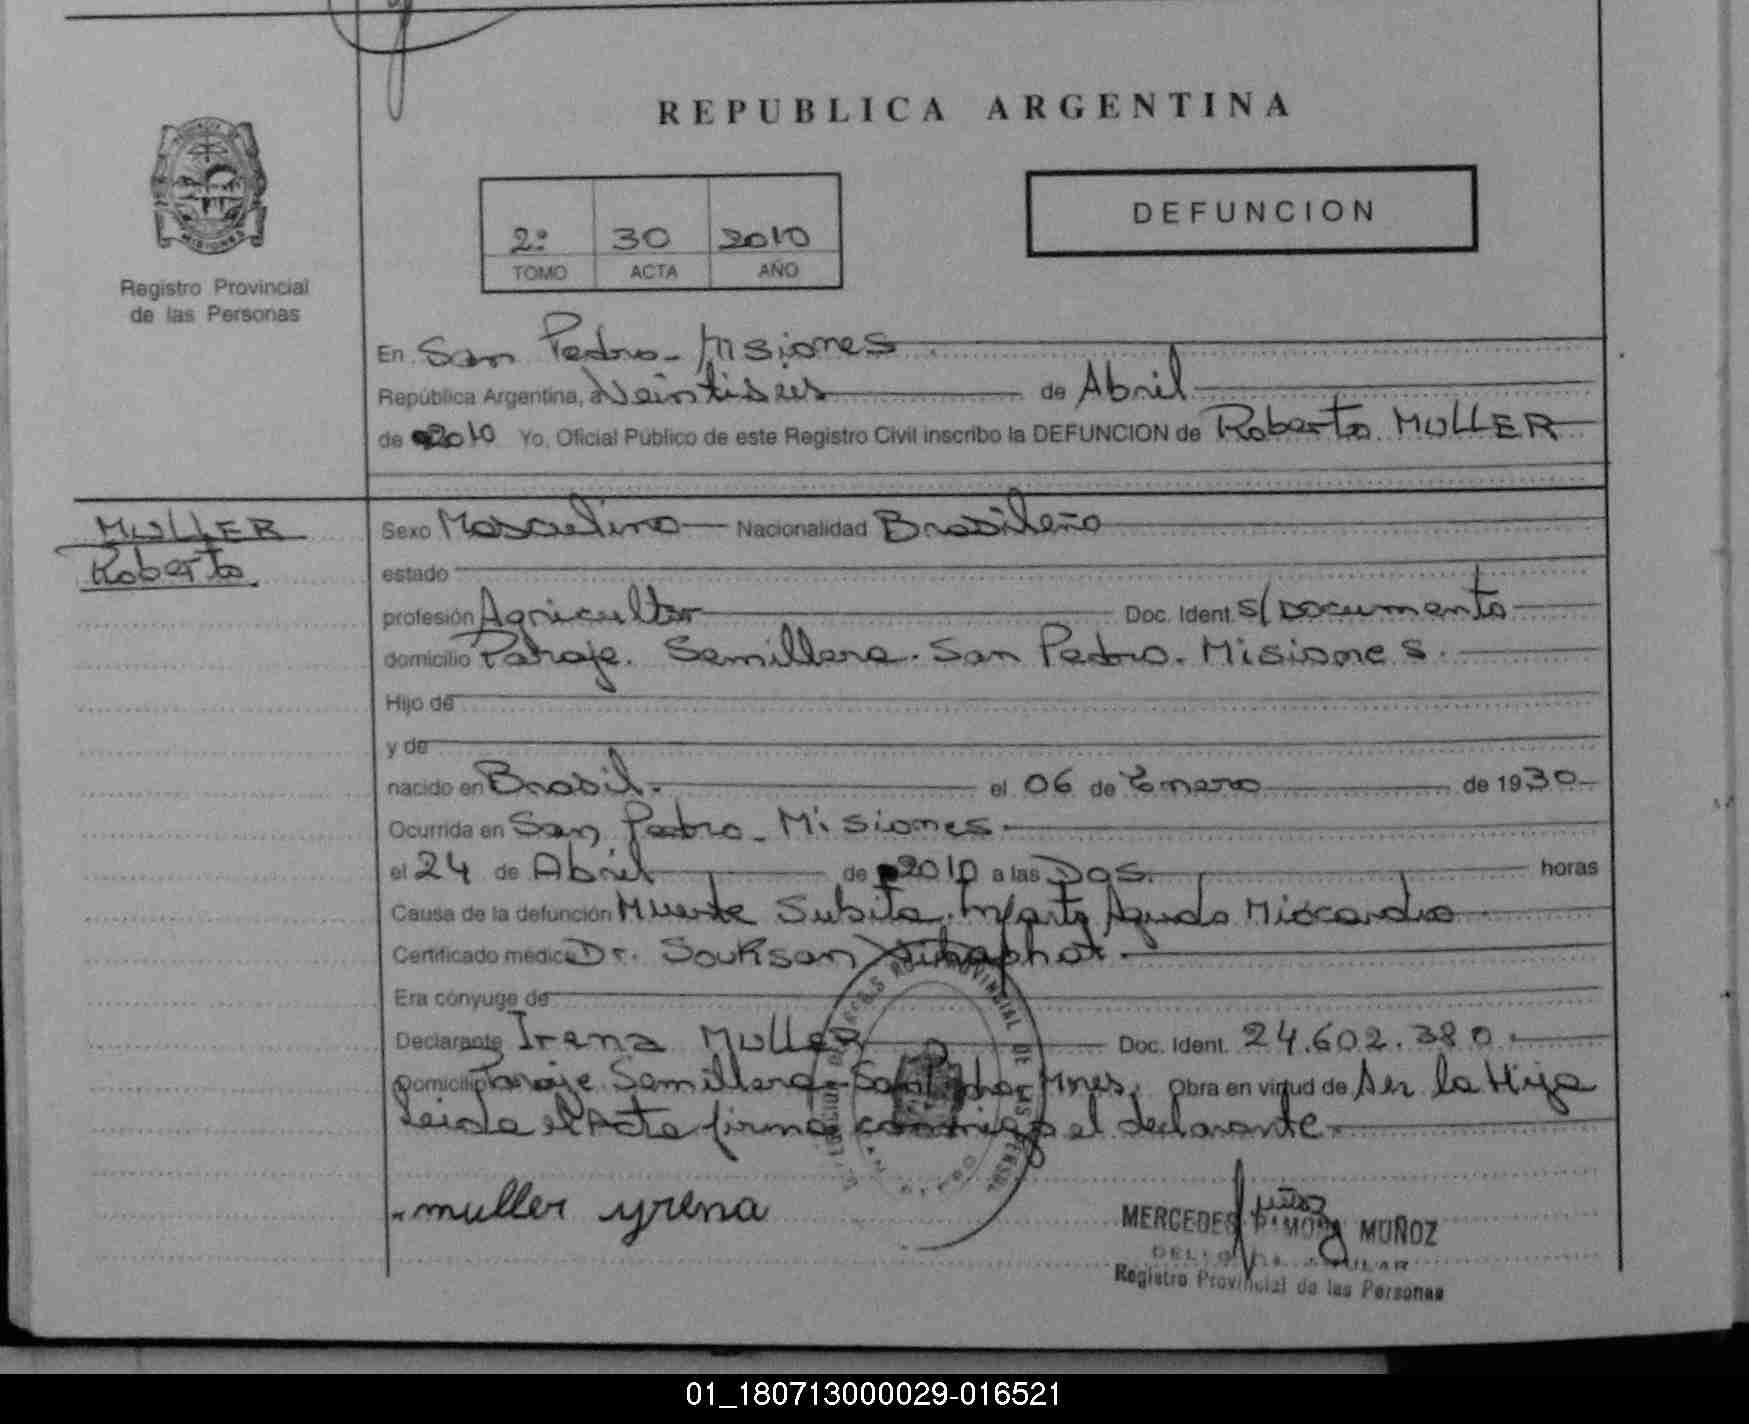 REPUBLICA ARGENTINA
DEFUNCION
2º 30 2010
TOMO ACTA AÑO
Registro Provincial
de las Personas
En San Pedro - Misiones
República Argentina, a Veintiseis de Abril
de 2010 Yo, Oficial Público de este Registro Civil inscribo la DEFUNCION de Roberto MULLER
MULLER
Roberto
Sexo Masculino Nacionalidad Brasileño
estado
profesión Agricultor Doc. Ident. S/Documento
domicilio Paraje. Semillera. San Pedro. Misiones.
Hijo de
y de
nacido en Brasil. el 06 de Enero de 1930
Ocurrida en San Pedro - Misiones
el 24 de Abril de 2010 a las Dos. horas
Causa de la defunción Muerte Subita. Infarto Agudo Miocardio
Certificado médico Dr. Souksan
Era cónyuge de
Declarante Irena Muller Doc. Ident. 24.602.380
Domicilio Paraje Semillera - San Pedro Mnes. Obra en virtud de Ser la Hija
Leida el Acta firma conmigo el declarante
muller yrena
MERCEDES RAMONA MUÑOZ
Registro Provincial de las Personas
01_180713000029-016521